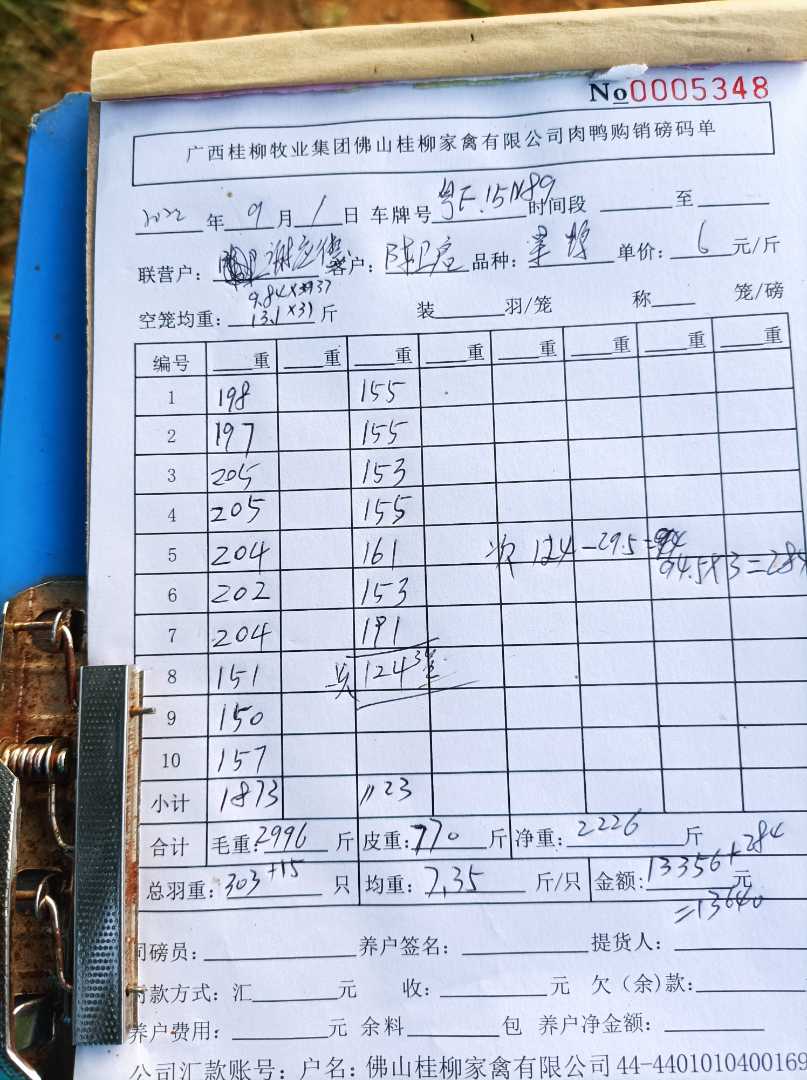 No0005348
广西桂柳牧业集团佛山桂柳家禽有限公司肉鸭购销磅码单
2022 年 9 月 1 日 车牌号 粤E.15N89 时间段 至
联营户: 客户: 品种: 单价: 6 元/斤
9.84×
空笼均重: 13.1×39 斤 装 羽/笼 称 笼/磅
编号 重 重 重 重 重 重 重 重
1 198 155
2 197 155
3 205 153
4 205 155
5 204 161 次 124-29.5=
94.5×3=284
6 202 153
7 204 191
8 151 124
9 150
10 157
小计 1873 1123
合计 毛重:2996 斤 皮重:770 斤 净重:2226 斤
总羽重:303+15 只 均重:7.35 斤/只 金额:13356+284 元
=13640
司磅员: 养户签名: 提货人:
付款方式:汇 元 收: 元 欠(余)款:
养户费用: 元 余料 包 养户净金额:
公司汇款账号:户名:佛山桂柳家禽有限公司 44-4401010400169